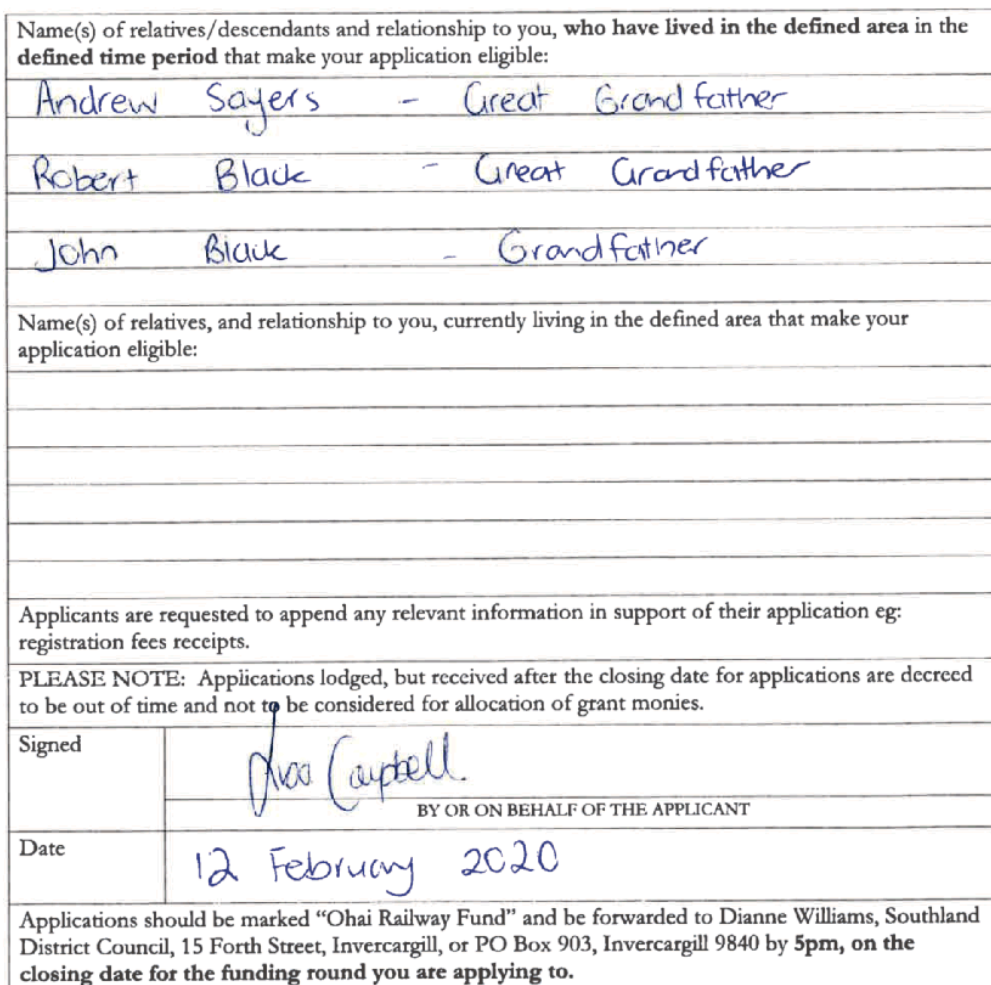 Name(s) of relatives/descendants and relationship to you, who have lived in the defined area in the
defined time period that make your application eligible:
Andrew Sayers - Great Grandfather
Robert Black - Great Grandfather
John Black - Grandfather
Name(s) of relatives, and relationship to you, currently living in the defined area that make your
application eligible:
Applicants are requested to append any relevant information in support of their application eg:
registration fees receipts.
PLEASE NOTE: Applications lodged, but received after the closing date for applications are decreed
to be out of time and not to be considered for allocation of grant monies.
Signed
Campbell.
BY OR ON BEHALF OF THE APPLICANT
Date
12 February 2020
Applications should be marked “Ohai Railway Fund” and be forwarded to Dianne Williams, Southland
District Council, 15 Forth Street, Invercargill, or PO Box 903, Invercargill 9840 by 5pm, on the
closing date for the funding round you are applying to.